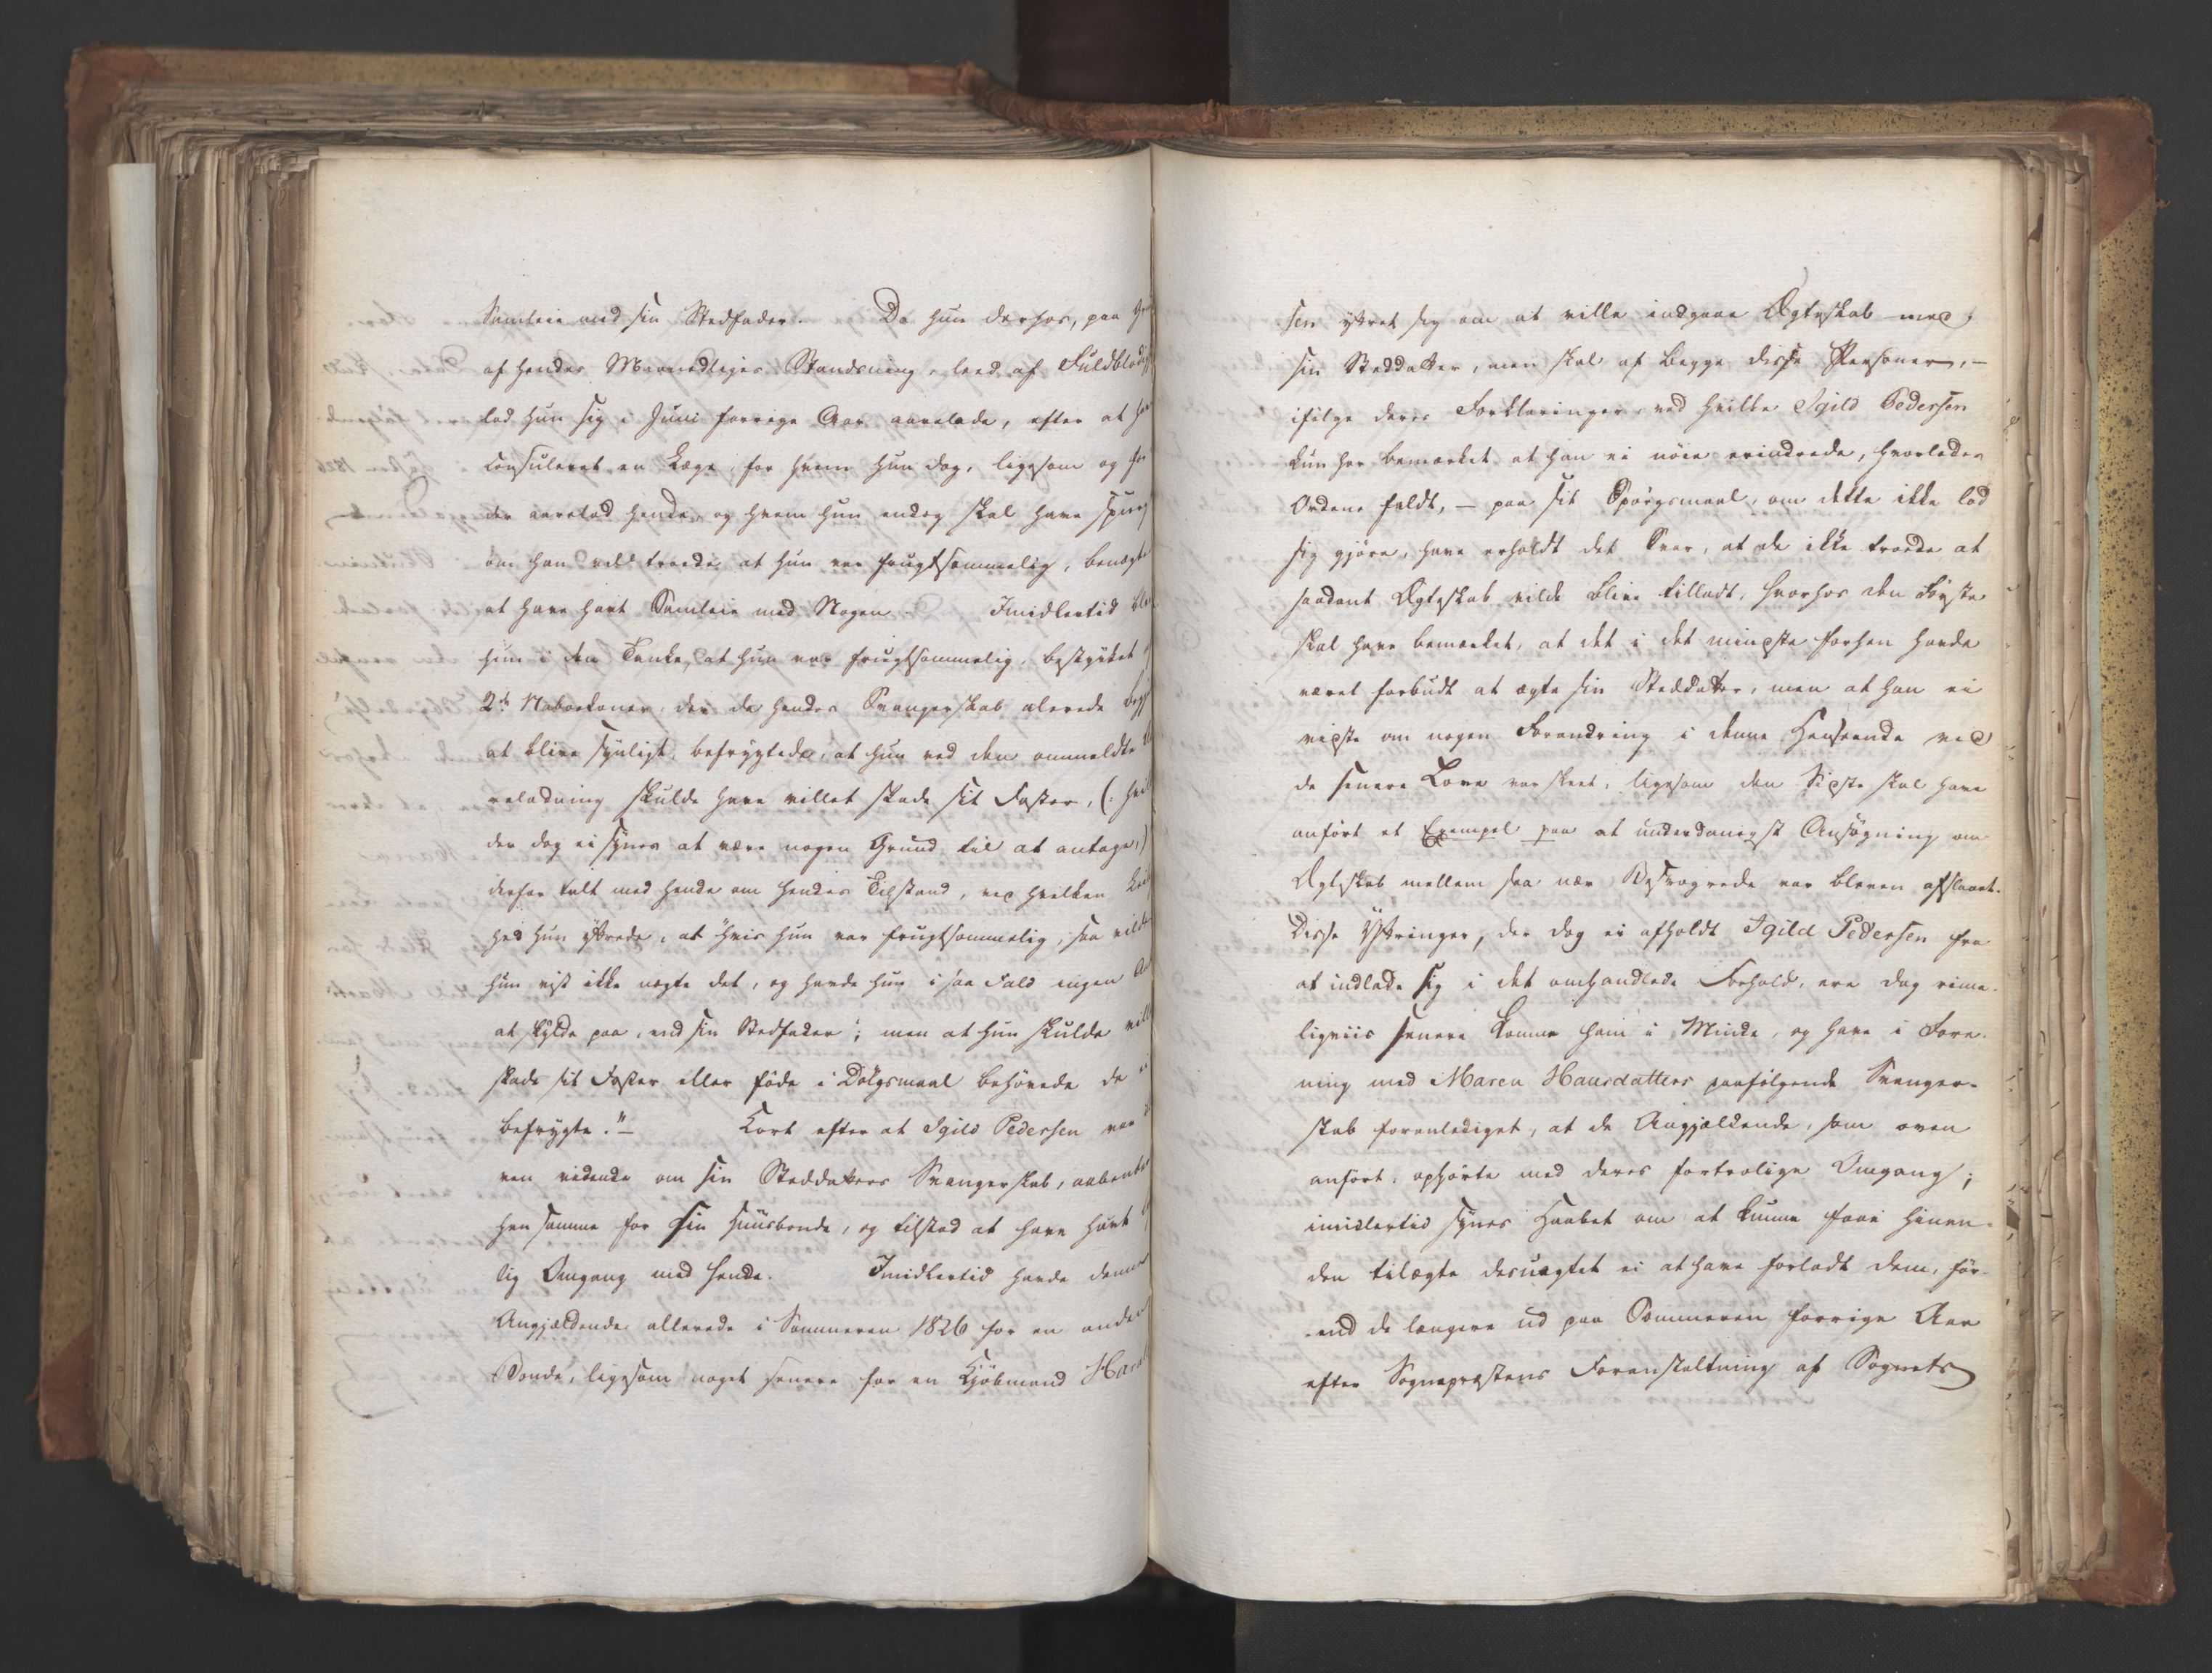 Samleie med sin Stedfader. Da hun derhos, paa
af hendes Maanedliges Standsning, leed af Fuldblodig
lod hun sig i Juni forrige Aar aarelade, efter at
consuleret en Læge, for hvem hun dog, ligesom og for
der aarelod hende, og hvem hun endog skal have spurgt
om han vel troede at hun var frugtsommelig, benægte
at have havt Samleie med Nogen. Imidlertid blev
hun i den Tanke, at hun var frugtsommelig, bestyrket
2de Naboekoner, der da hendes Svangerskab alerede
at blive synligt, befrygtede, at hun ved den ommeldte
reladning skulde have villet skade sit Foster, (: hvil
der dog ei synes at være nogen Grund til at antage,)
derfor talt med hende om hendes Tilstand, ved hvilken Leil
hed hun yttrede, at "hvis hun var frugtsommelig, saa vilde
hun vist ikke nægte det, og havde hun i saa Fald ingen
at skylde paa, end sin Stedfader; men at hun skulde ville
skade sit Foster eller føde i Dølgsmaal behøvede de ei
befrygte." Kort efter at Igild Pedersen var
ven vidende om sin Steddatters Svangerskab, aabenba
han samme for sin Huusbonde, og tilstod at have havt
lig Omgang med hende. Imidlertid havde denne
Angjældende allerede i Sommeren 1826 for en anden
Bonde, ligesom noget senere for en Kjøbmand Han
sen yttret sig om at ville indgaae Ægteskab med
sin Steddatter, men skal af begge disse Personer, –
ifølge deres Forklaringer, ved hvilke Igild Pedersen
kun har bemærket at han ei nøie erindrede, hvorledes
Ordene faldt, – paa sit Spørgsmaal, om dette ikke lod
sig gjøre, have erholdt det Svar, at de ikke troede at
saadant Ægteskab vilde blive tilladt, hvorhos den Første
skal have bemærket, at det i det mindste forhen havde
været forbudt at ægte sin Steddatter, men at han ei
vidste om nogen Forandring i denne Henseende ved
de senere Love var skeet, ligesom den Sidste skal have
anført et Exempel paa at underdanigst Ansøgning om
Ægteskab mellem saa nær Besvogrede var bleven afslaaet.
Disse Yttringer, der dog ei afholdt Igild Pedersen fra
at indlade sig i det omhandlede Forhold, ere dog rime-
ligviis senere komne ham i Minde, og have i Fore-
ning med Maren Hansdatters paafølgende Svanger-
skab foranlediget, at de Angjældende, som oven
anført, ophørte med deres fortrolige Omgang;
imidlertid synes Haabet om at kunne faae hinan-
den tilægte desuagtet ei at have forladt dem, før-
end de længere ud paa Sommeren forrige Aar
efter Sognepræstens Foranstaltning af Sognets